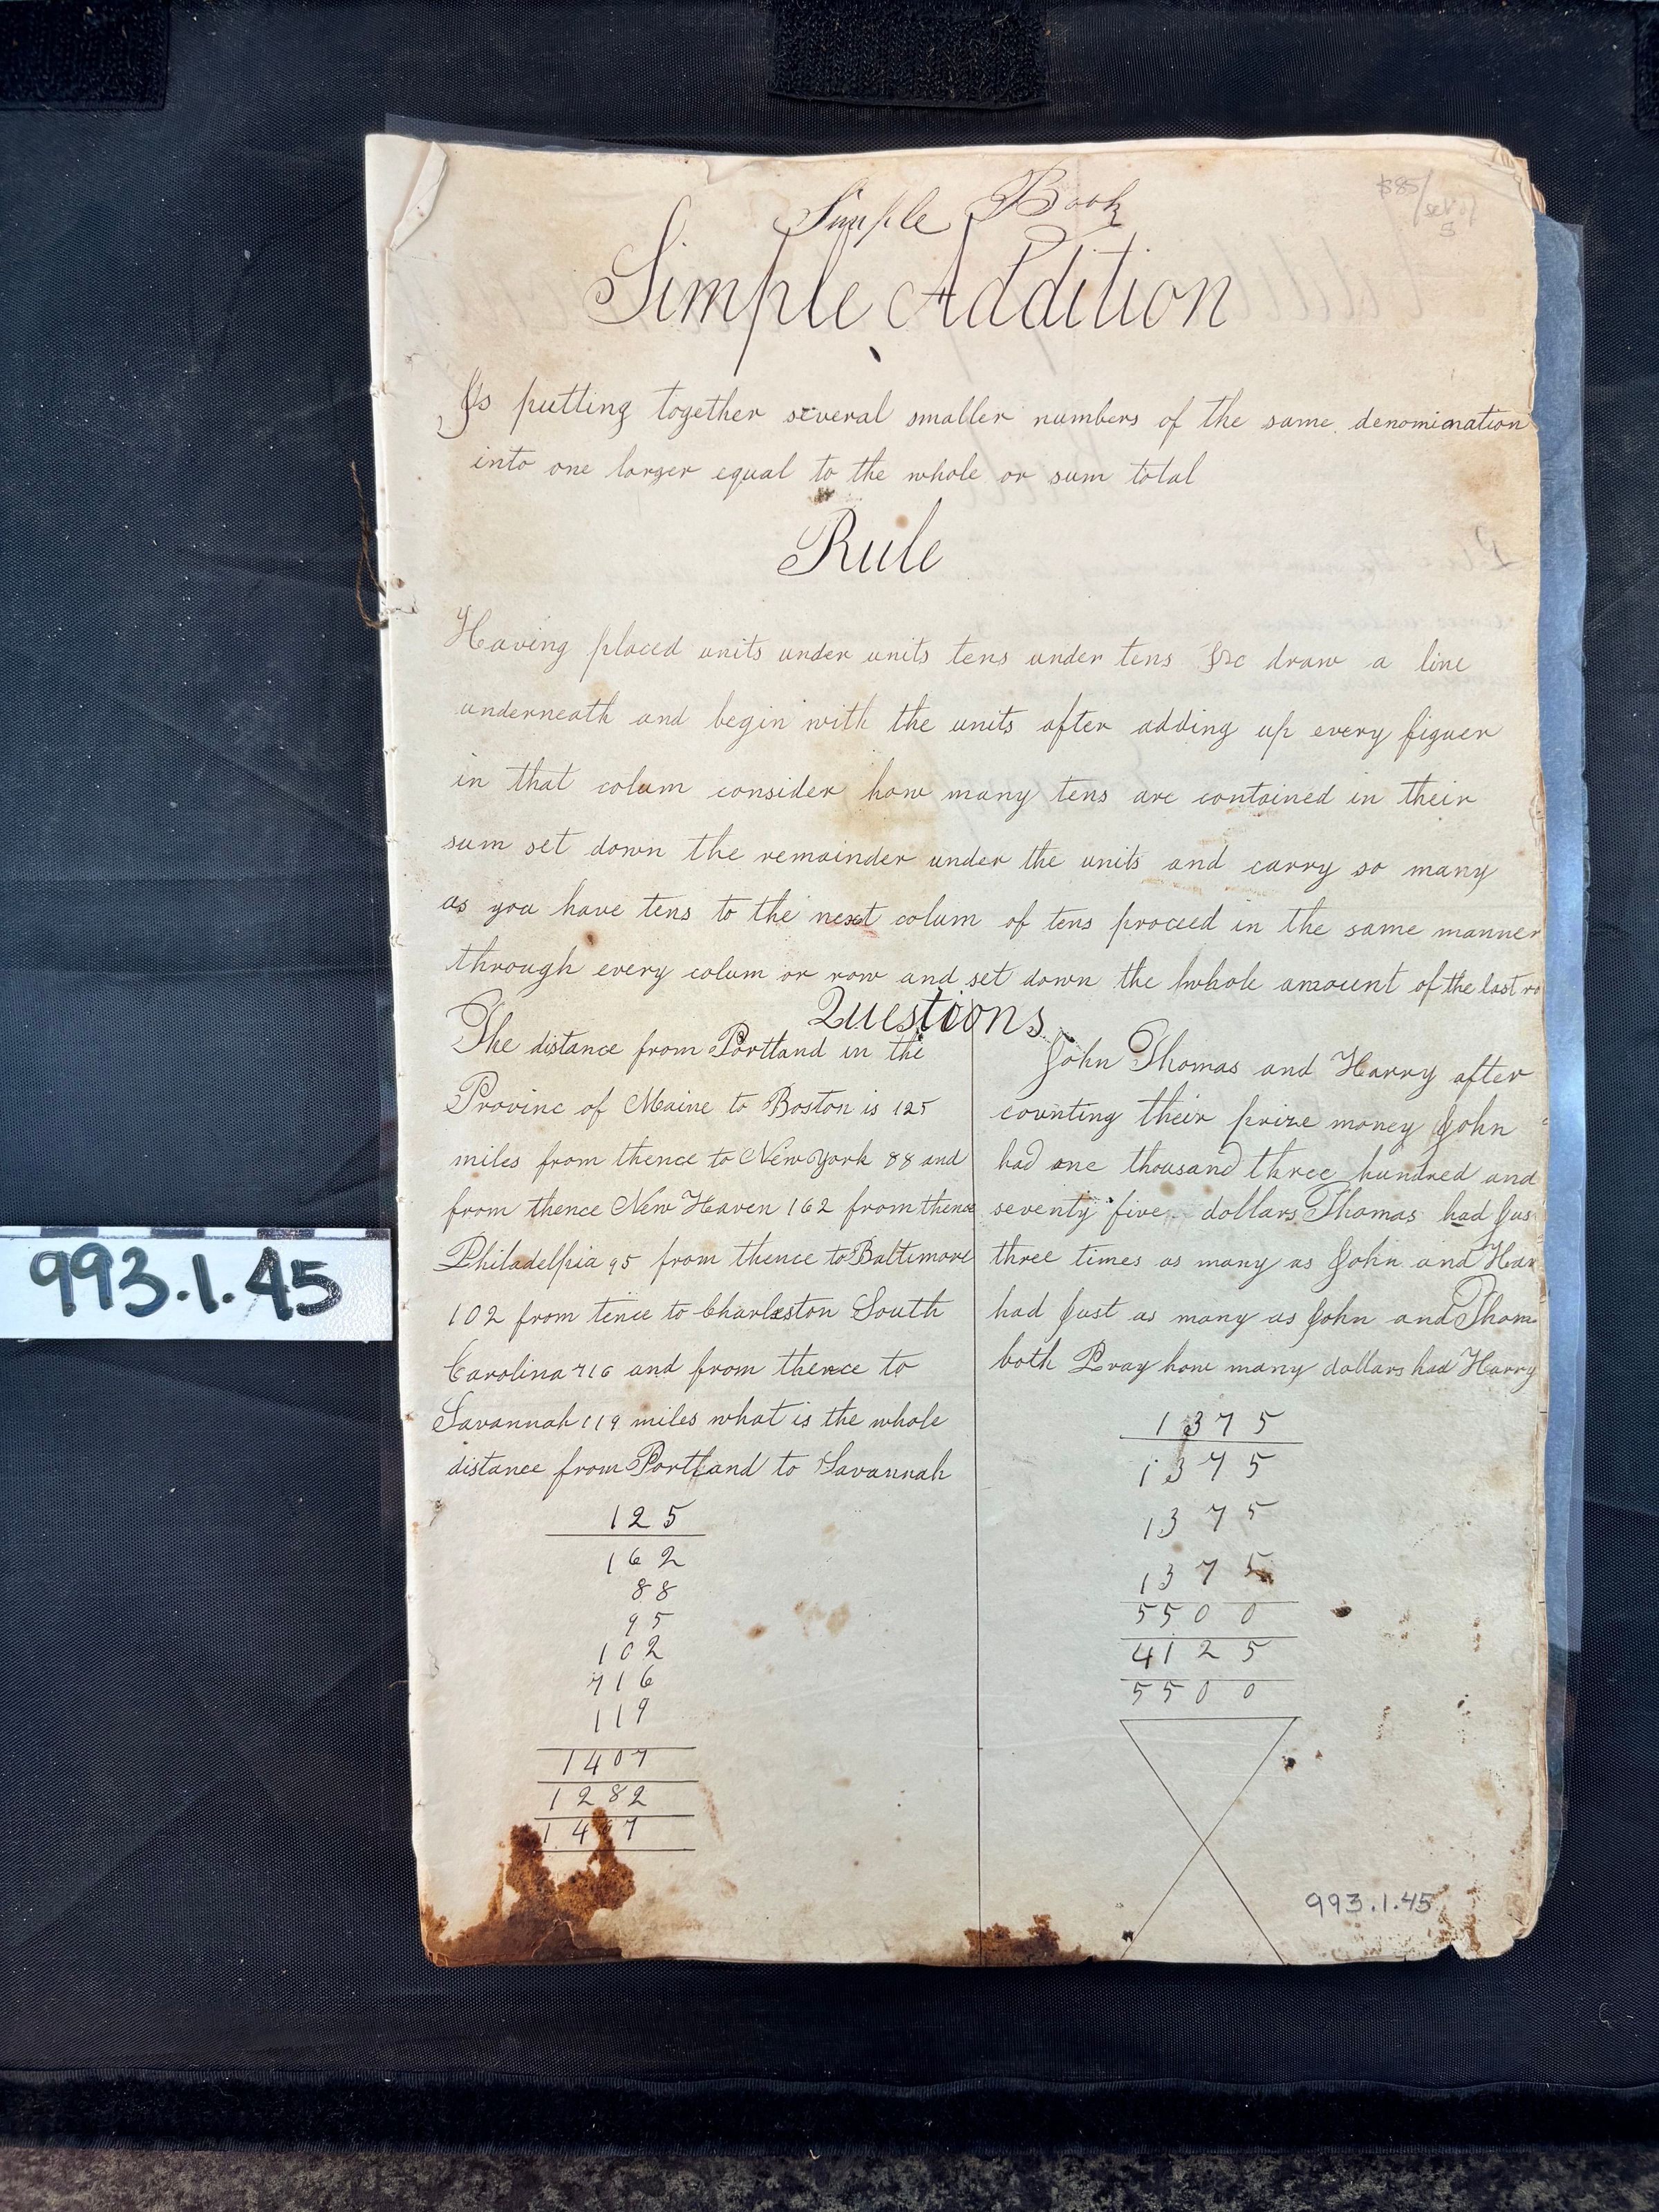 Simple Book
$85/
Simple Addition
Is putting together several smaller numbers of the same denomination
into one larger equal to the whole or sum total
Rule
Having placed units under units tens under tens &c draw a line
underneath and begin with the units after adding up every figuer
in that colum consider how many tens are contained in their
sum set down the remainder under the units and carry so many
as you have tens to the next colum of tens proceed in the same manner
through every colum or row and set down the whole amount of the last ro
Questions
The distance from Portland in the
Provinc of Maine to Boston is 125
miles from thence to New York 88 and
from thence New Haven 162 from thence
Philadelphia 95 from thence to Baltimore
102 from tence to Charleston South
Carolina 716 and from thence to
Savannah 119 miles what is the whole
distance from Portland to Savannah
125
162
88
95
102
716
119
1407
1282
1407
John Thomas and Harry after
counting their prize money John
had one thousand three hundred and
seventy five dollars Thomas had Jus
three times as many as John and Har
had Just as many as John and Thom
both Pray how many dollars had Harry
1375
1375
1375
1375
5500
4125
5500
993.1.45
993.1.45